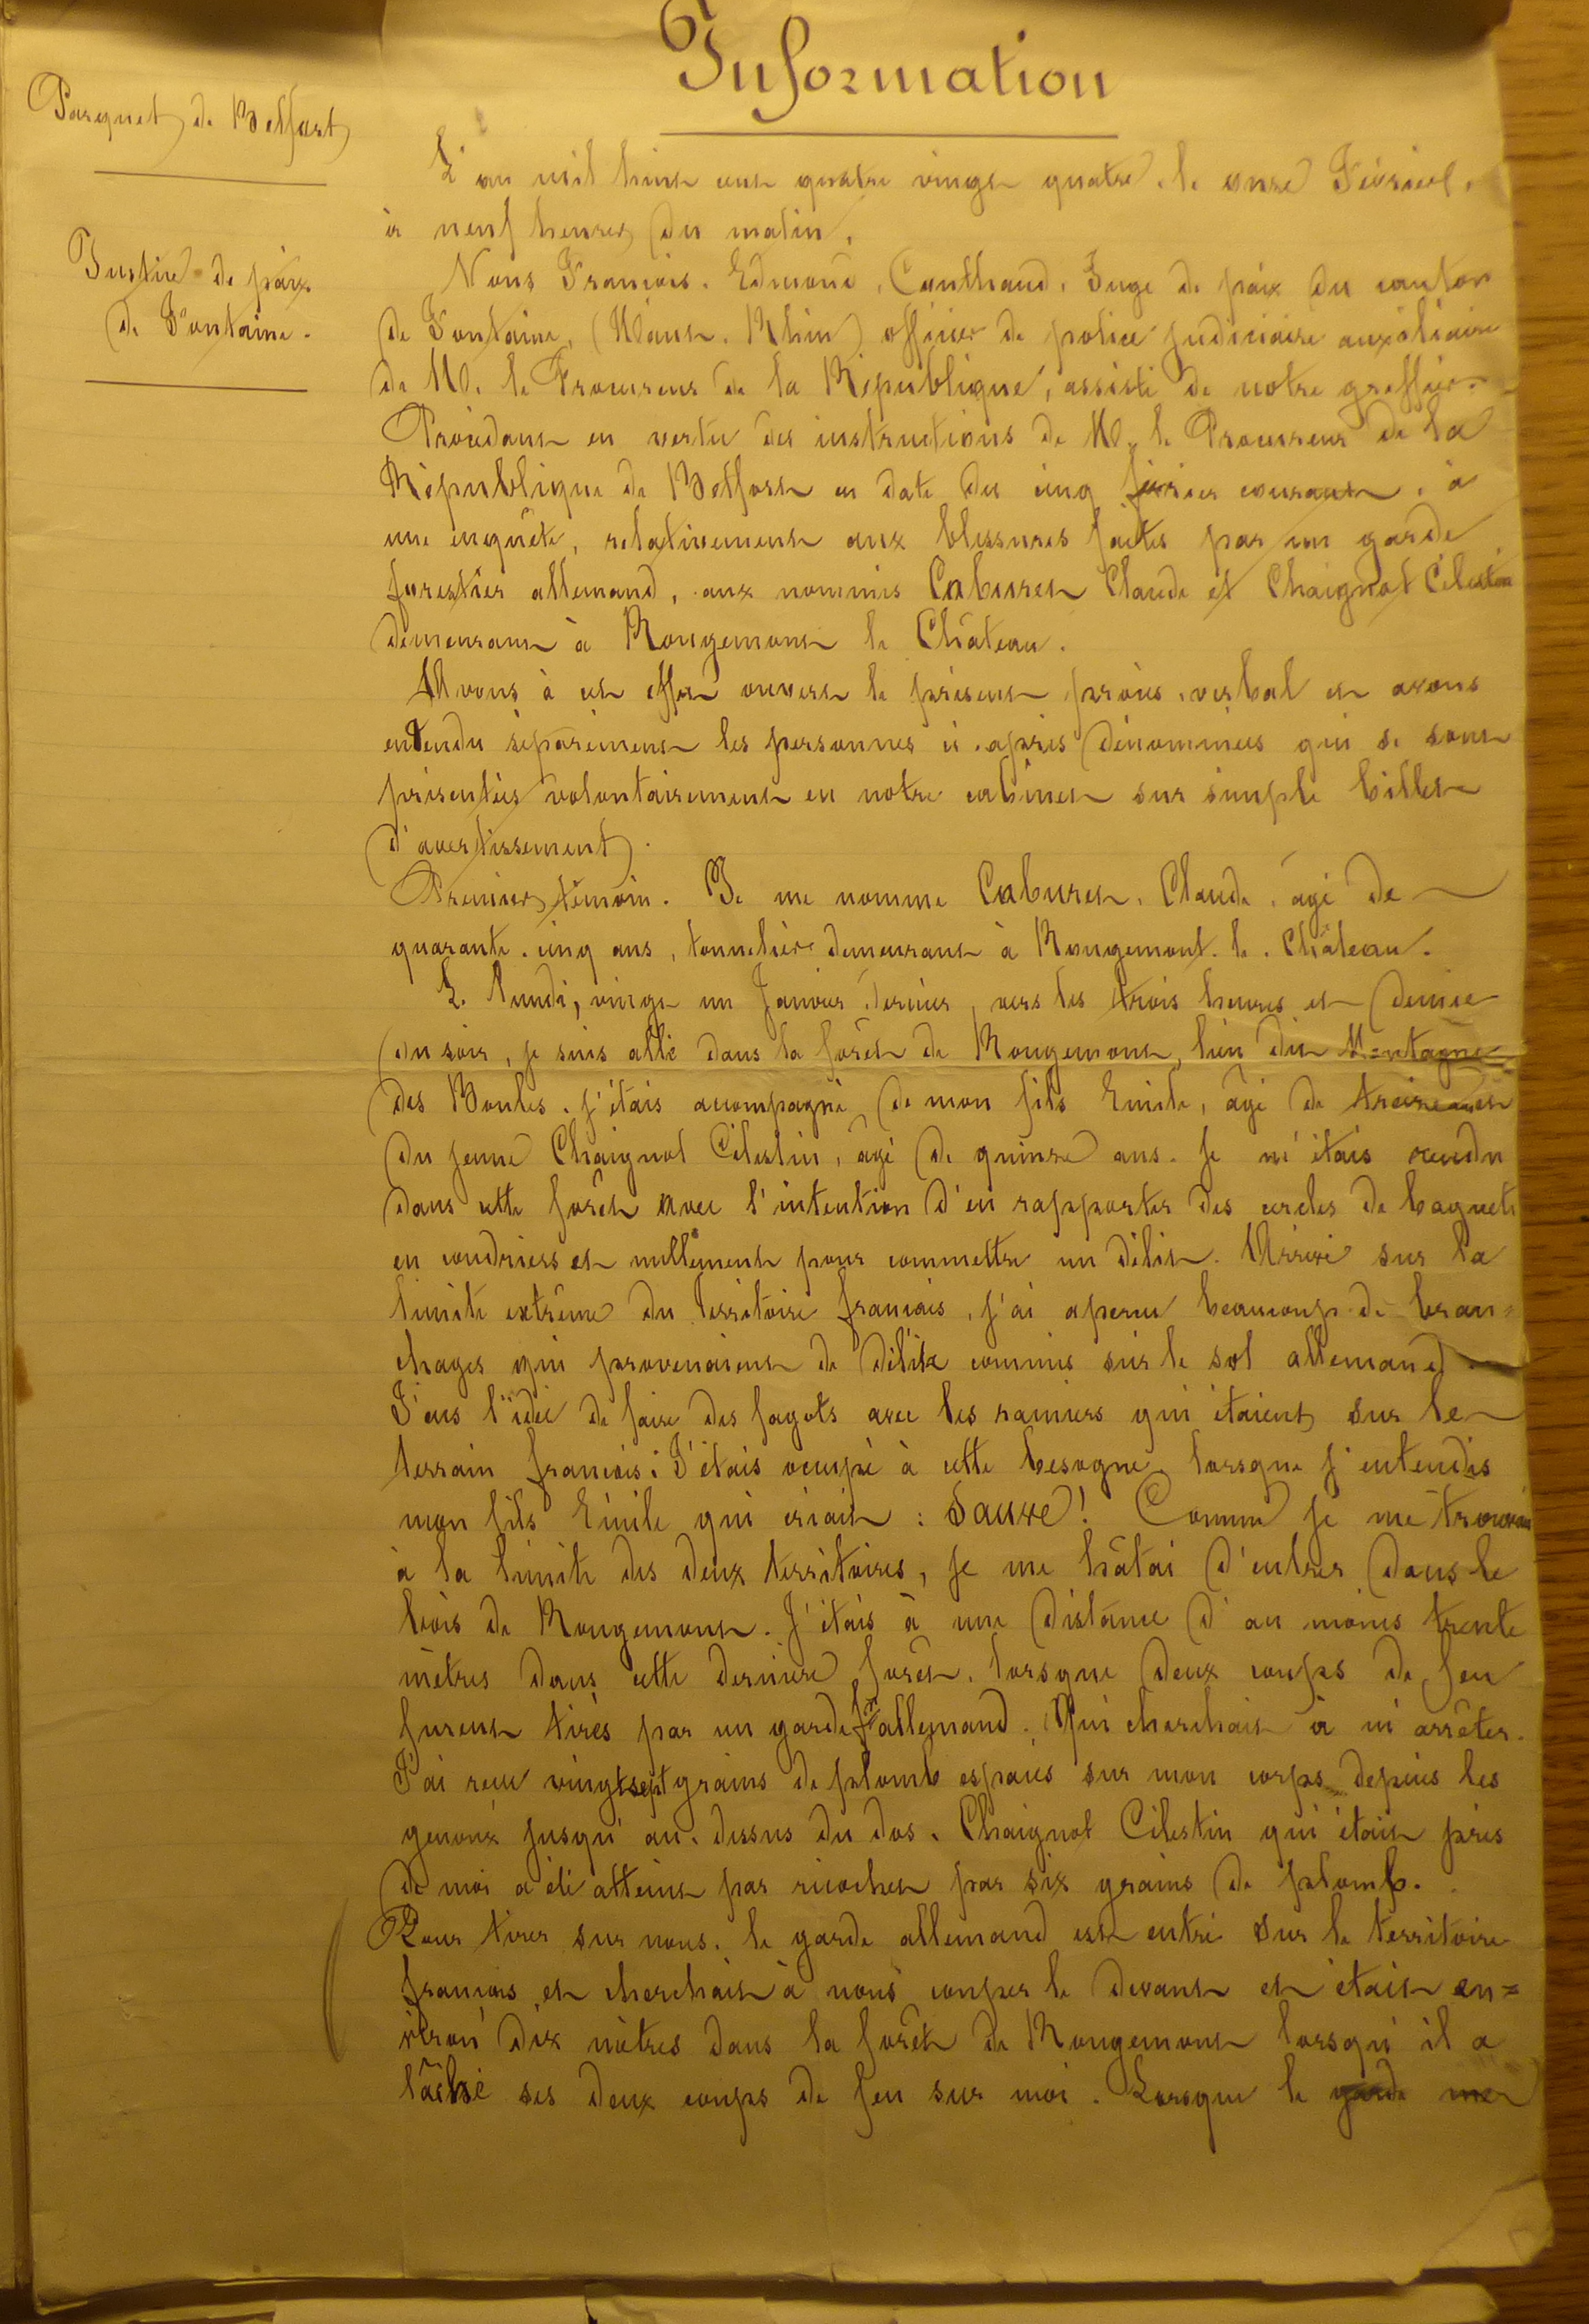 Information
Parquet de Belfort
Justice de paix
de Fontaine.
L'an mil huit cent quatre vingt quatre, le onze Février,
à neuf heures du matin,
Nous François. Edmond, Juge de paix du canton
de Fontaine, (Haut. Rhin) officier de police judiciaire auxiliaire
de M. le Procureur de la République, assisté de notre greffier.
Procédant en vertu des instructions de M. le Procureur de la
République de Belfort en date du cinq février courant, à
une enquête, relativement aux blessures faites par un garde
forestier allemand, aux nommés Caburet Claude et Chaignot Célestin
demeurant à Rougemont le Château.
Avons à cet effet ouvert le présent procès. verbal et avons
entendu séparément les personnes ci. après dénommées qui se sont
présentées volontairement en notre cabinet sur simple billet
d'avertissement.
Premier témoin. Je me nomme Caburet. Claude, âgé de
quarante. cinq ans, tonnelier demeurant à Rougemont. le. Château.
Le lundi, vingt un Janvier dernier, vers les trois heures et demie
du soir, je suis allé dans la forêt de Rougemont, lieu dit Montagne
des Boules. j'étais accompagné de mon fils Emile, âgé de treize ans et
du jeune Chaignot Célestin, âgé de quinze ans. Je m'étais rendu
dans cette forêt avec l'intention d'en rapporter des cercles de baquets
en coudriers et nullement pour commettre un délit. Arrivé sur la
limite extrême du territoire français, j'ai aperçu beaucoup de bran=
chages qui provenaient de délits commis sur le sol allemand.
J'eus l'idée de faire des fagots avec les ramiers qui étaient sur le
terrain français. J'étais occupé à cette besogne, lorsque j'entendis
mon fils Emile qui criait : Sauve! Comme je me trouvais
à la limite des deux territoires, je me hâtai d'entrer dans le
bois de Rougemont. J'étais à une distance d'au moins trente
mètres dans cette dernière forêt, lorsque deux coups de feu
furent tirés par un garde fr allemand. Qui cherchait à m'arrêter.
J'ai reçu vingt sept grains de plomb espacés sur mon corps depuis les
genoux jusqu'au. dessus du dos. Chaignot Célestin qui était près
de moi a été atteint par ricochet par six grains de plomb.
Pour tirer sur nous, le garde allemand est entré sur le territoire
français et cherchait à nous couper le devant et était en=
viron dix mètres dans la forêt de Rougemont lorsqu'il a
lâché ses deux coups de feu sur moi. Lorsque le garde me